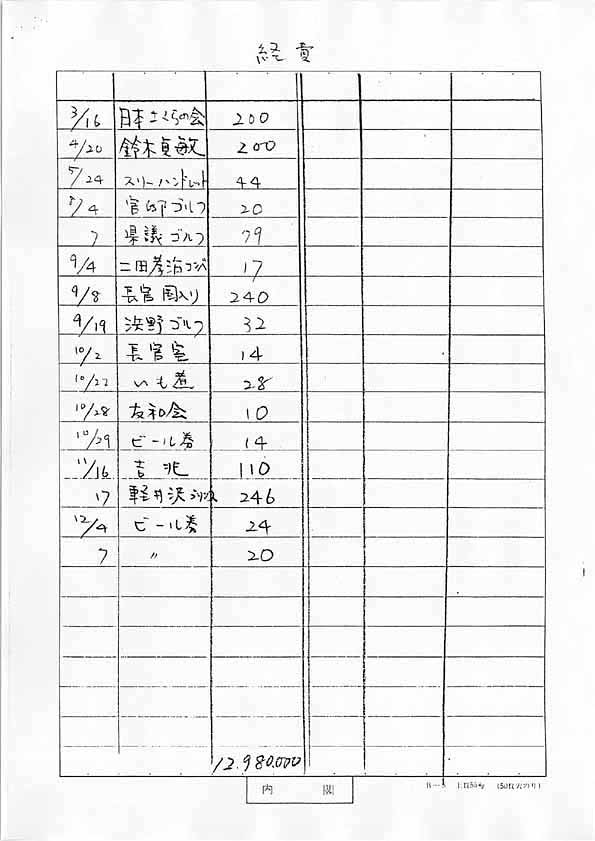 経費
3/16 日本さくらの会 200
4/20 鈴木貞敏 200
5/24 スリーハンドレット 44
8/4 官邸ゴルフ 20
7 県議ゴルフ 79
9/4 二田孝治コンペ 17
9/8 長官国入り 240
9/19 浜野ゴルフ 32
10/2 長官室 14
10/22 いも煮 28
10/28 友和会 10
10/29 ビール券 14
11/16 吉兆 110
17 軽井沢プリンス 246
12/4 ビール券 24
7 〃 20
12.980.000
内閣